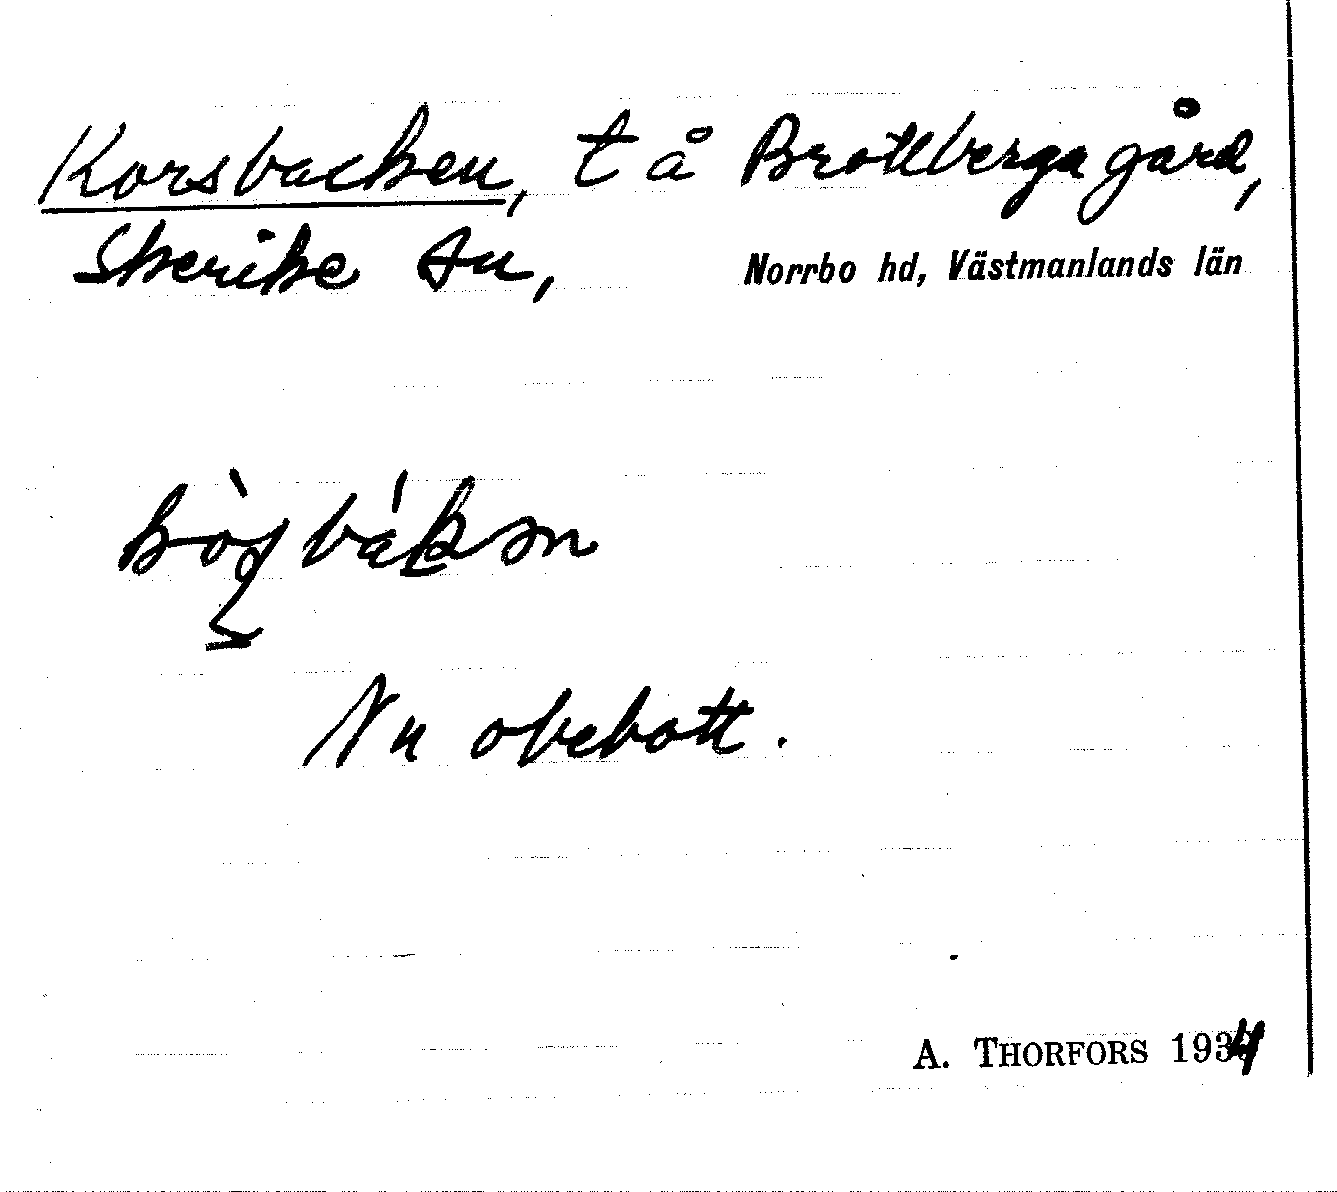 Korsbacken, t å Brottberga gård,
Skerike sn, Norrbo hd, Västmanlands län
Nu obebott.
A. THORFORS 1934